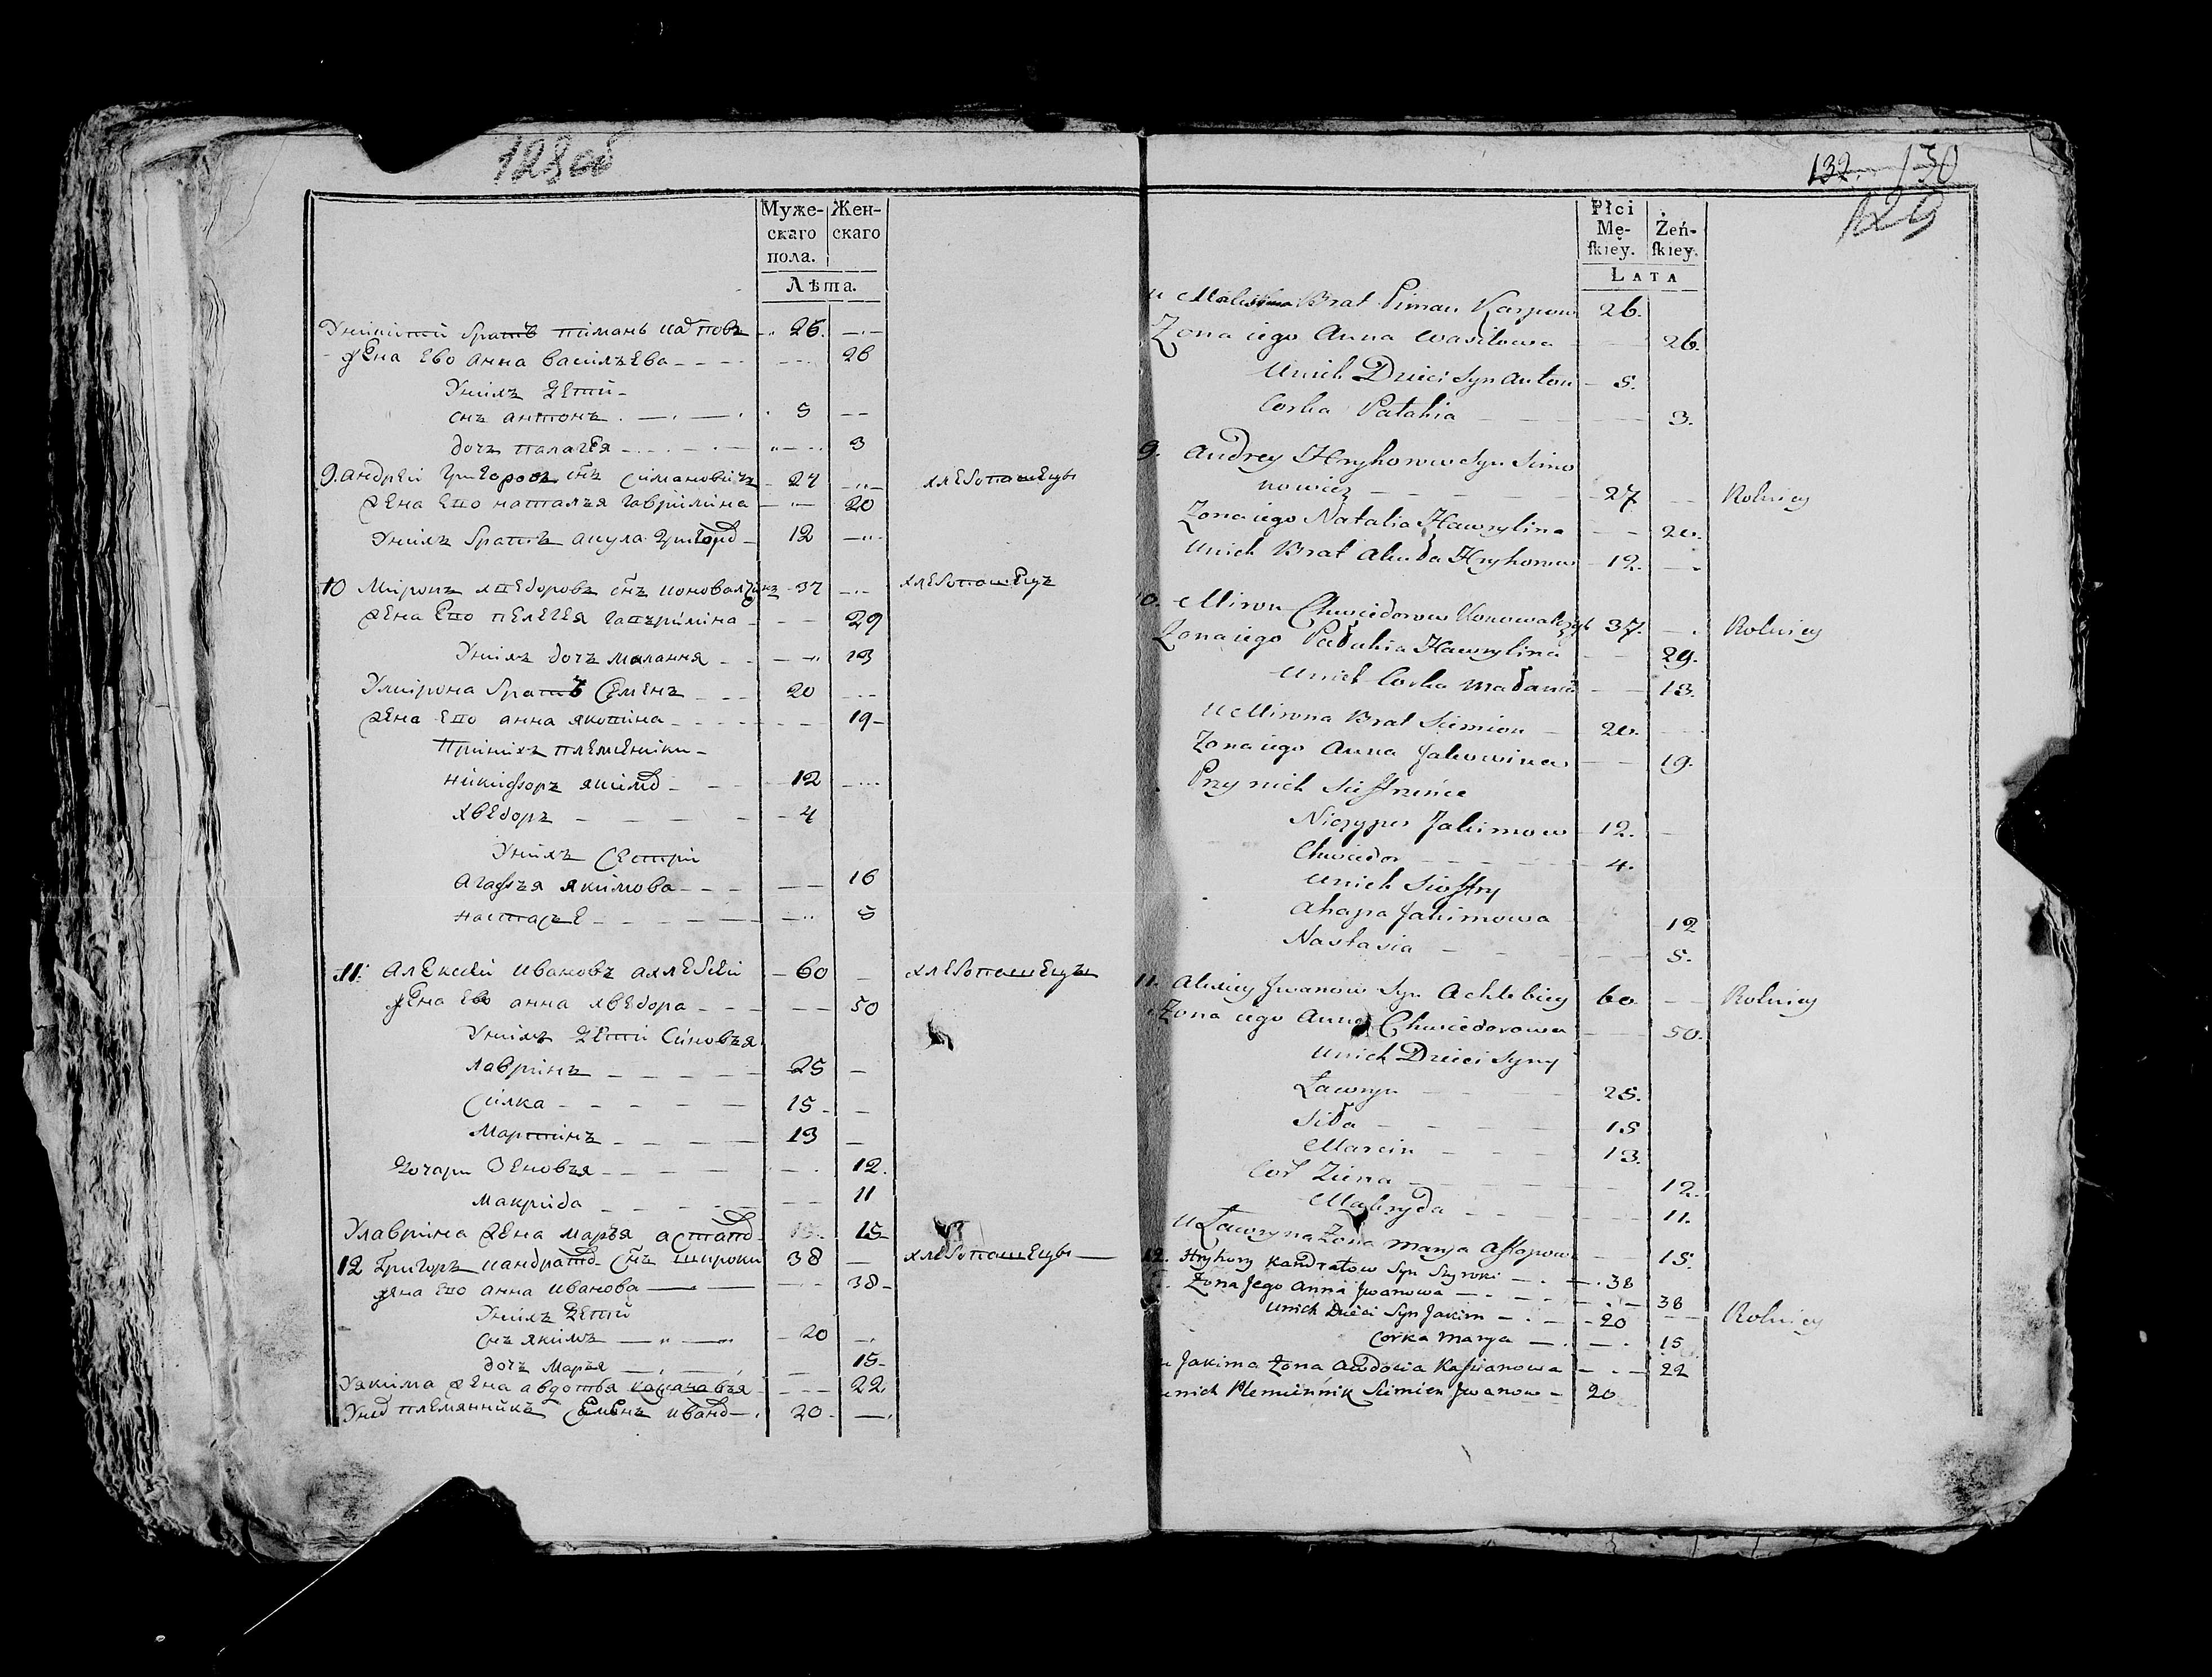 128 об
Муже-
скаго
пола.
Жен-
скаго
Лѣта.
братъ пиманъ — 26.
жена Ево анна васильЕва — 26
Унихъ дети
снъ антонъ — 5
дочъ палагЕя — 3
9. андрЕй григоровъ снъ симановичъ — 27 — хлЕбопашЕцы
жЕна Ево наталья гаврилина — 20
Унихъ братъ акула григоро — 12
10 Миронъ хвЕдоровъ снъ коновалчикъ — 37 — хлЕбопашЕцъ
жЕна Ево пЕлЕгЕя гаврилина — 29
Унихъ дочъ малання — 13
Умирона братъ СЕмЕнъ — 20
жЕна Ево анна яковина — 19
Принихъ плЕмЕники
никифоръ якимо — 12
хвЕдоръ — 4
Унихъ СЕстри
Агафья якимова — 16
настасЕ — 5
11. АлЕксЕй ивановъ ахлЕбЕй — 60 — хлЕбопашЕцъ
жЕна Ево анна хвЕдора — 50
Унихъ дЕти Синовья
лавринъ — 25
Силка — 15
Мартинъ — 13
дочари зЕновья — 12.
макрида — 11
Улаврина жЕна марья астапо — 15
12 Григоръ кандрато снъ широки — 38 — хлЕбопашЕцы
жена Ево анна иванова — 38
Унихъ дЕтЕй
снъ якимъ — 20
дочъ Марья — 15
Уякима жЕна авдотья касяновья — 22
Унео плЕмянникъ СЕмЕнъ ивано — 20
132 130
129
Płci
Mę-
skiey.
Żeń-
skiey.
LATA
Brat Piman Karpow 26.
Zona iego Anna Wasilowa — 26.
Unich Dzieci Syn Anton — 5.
Corka Pałahia — 3.
9. Andrey Hryhorow Syn Simo
nowicz — 27. — Rolnicy
Zona iego Natalia Hawrylina — 20.
Unich Brat Akuła Hryhorow — 12.
10. Miron Chwiedorow Konowalczyk 37. — Rolnicy
Zona iego Pałahia Hawrylina — 29.
Unich Corka Małania — 13.
U Mirona Brat Siemion — 20.
Zona iego Anna Jakowina — 19.
Przy nich Siestrzency
Niczypor Jakimow — 12.
Chwiedor — 4.
Unich Siostry
Ahapa Jakimowa — 12
Nastasia — 5.
11. Alexiey Jwanow Syn Achlebiey 60 — Rolnicy
Zona iego Anna Chwiedorowa — 50.
Unich Dzieci Syny
Ławryn — 25.
Siła — 15
Marcin — 13.
Cor Ziena — 12.
Makryda — 11.
U Ławryna Zona Marya Astapow — 15.
12. Hryhory Kandratow Syn Szyroki — 38
Zona Jego Anna Jwanowa — 38
Unich Dzieci Syn Jakim — 20 — Rolnicy
Corka Marya — 15
u Jakima Zona Awdocia Kasianowa — 22
unich Plemiennik Siemien Jwanow — 20